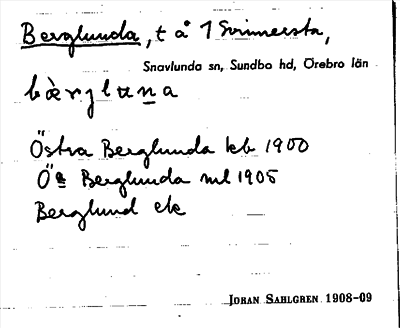 Berglunda, t å 1 Svinnersta,
Snavlunda sn, Sundbo hd, Örebro län
Östra Berglunda kb 1900
Ö a Berglunda ml 1905
Berglund ek
JOHAN SAHLGREN 1908-09